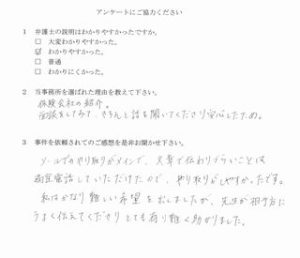 アンケートにご協力ください
1 弁護士の説明はわかりやすかったですか。
□ 大変わかりやすかった。
☑ わかりやすかった。
□ 普通
□ わかりにくかった。
2 当事務所を選ばれた理由を教えて下さい。
保険会社の紹介。
面談をしてみて、きちんと話を聞いてくださり安心したため。
3 事件を依頼されてのご感想を是非お聞かせ下さい。
メールでのやり取りがメインで、文章で伝わりづらいことは
適宜電話していただけたので、やり取りがしやすかったです。
私はかなり難しい希望を出しましたが、先生が相手方に
うまく伝えてくださりとても有り難く助かりました。